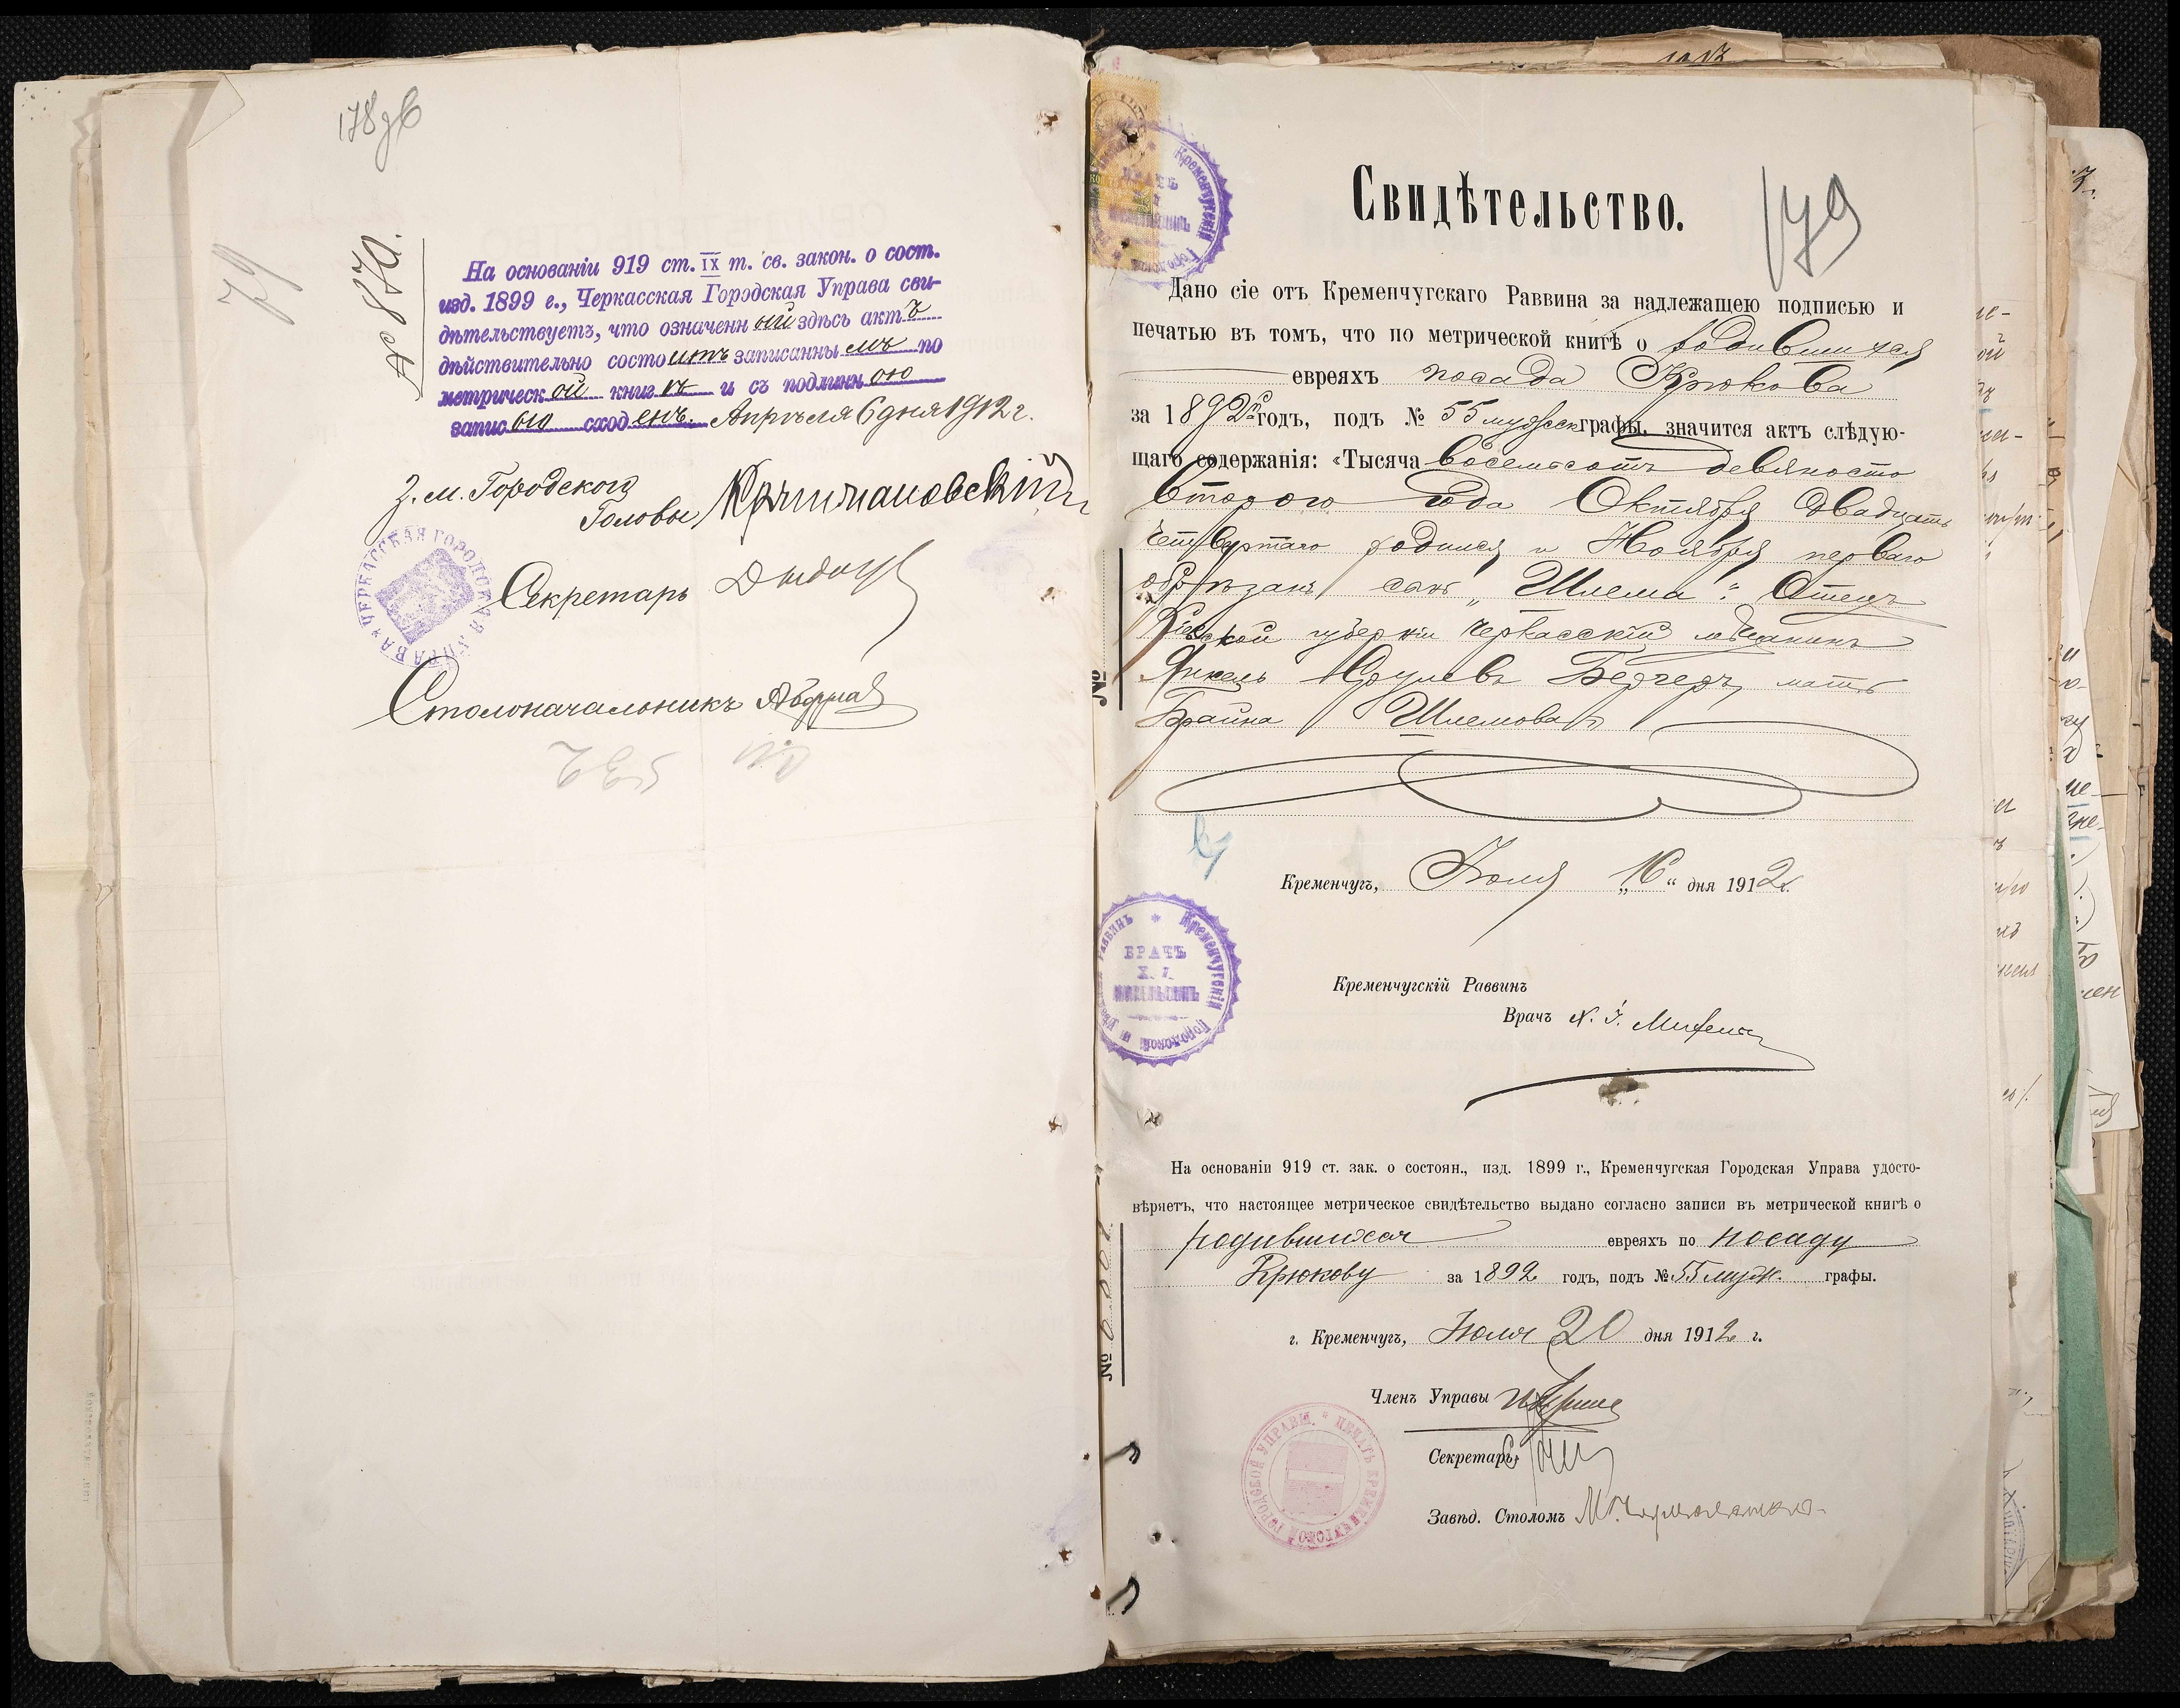 178 об
79
№ 870.
На основаніи 919 ст. IX т. св. закон. о сост.
изд. 1899 г., Черкасская Городская Управа сви-
дѣтельствуетъ, что означенный здѣсь актъ
дѣйствительно состоитъ записаннымъ по
метрической книгѣ и съ подлинною
записью сходенъ. Апрѣля 6 дня 1912 г.
З. м. Городского
Головы
Секретарь
Столоначальникъ
ЧЕРКАССКАЯ ГОРОДСКАЯ УПРАВА
Свидѣтельство.
179
Дано сіе отъ Кременчугскаго Раввина за надлежащею подписью и
печатью въ томъ, что по метрической книгѣ о родившихся
евреяхъ посада Крюкова
за 1892 годъ, подъ № 55 мужск графы, значится актъ слѣдую-
щаго содержанія: «Тысяча восемьсотъ девяносто
второго года Октября двадцать
четвертаго родился и Ноября перваго
обрѣзанъ сынъ „Шлема“. Отецъ
Кіевской губерніи Черкасскій мѣщанинъ
Янкель Срулевъ мать
Брайна Шлемова
Кременчугъ, Іюля „16“ дня 1912 г.
Кременчугскій Городской и Раввинъ
ВРАЧЪ
Х. І.
Кременчугскій Раввинъ
Врачъ Х. І.
На основаніи 919 ст. зак. о состоян., изд. 1899 г., Кременчугская Городская Управа удосто-
вѣряетъ, что настоящее метрическое свидѣтельство выдано согласно записи въ метрической книгѣ о
родившихся евреяхъ по посаду
Крюкову за 1892 годъ, подъ № 55 муж. графы.
г. Кременчугъ, Іюля 20 дня 1912 г.
Членъ Управы
Секретарь
Завѣд. Столомъ
ПЕЧАТЬ КРЕМЕНЧУГСКОЙ ГОРОДСКОЙ УПРАВЫ
№
№